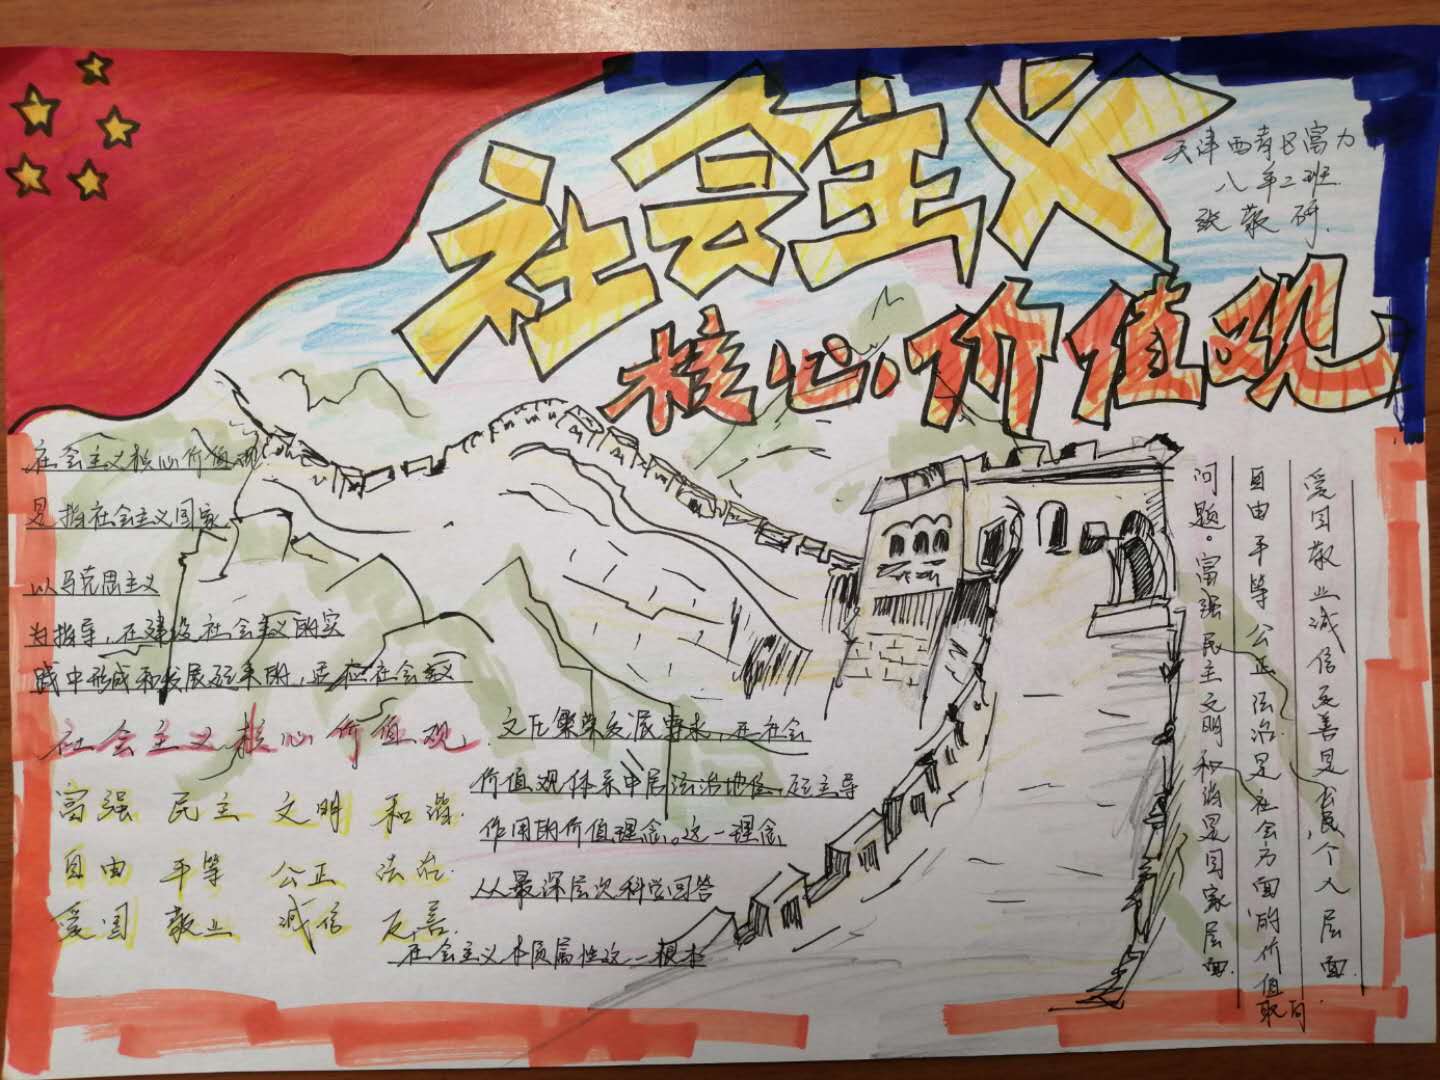 社会主义
核心价值观
天津西青区富力
八年二班
张
研
社会主义核心价值观
是指社会主义国家
以马克思主义
为指导，在建设社会主义的实
践中形成和发展起来的，适应社会主义
社会主义核心价值观
富强 民主 文明 和谐
自由 平等 公正 法治
爱国 敬业 诚信 友善
文化繁荣发展要求，在社会
价值观体系中居统治地位，起主导
作用的价值理念。这一理念
从最深层次科学回答
社会主义本质属性这一根本
问题。富强民主文明和谐是国家层面
自由平等公正法治是社会方面的价值取向
爱国敬业诚信友善是公民个人层面